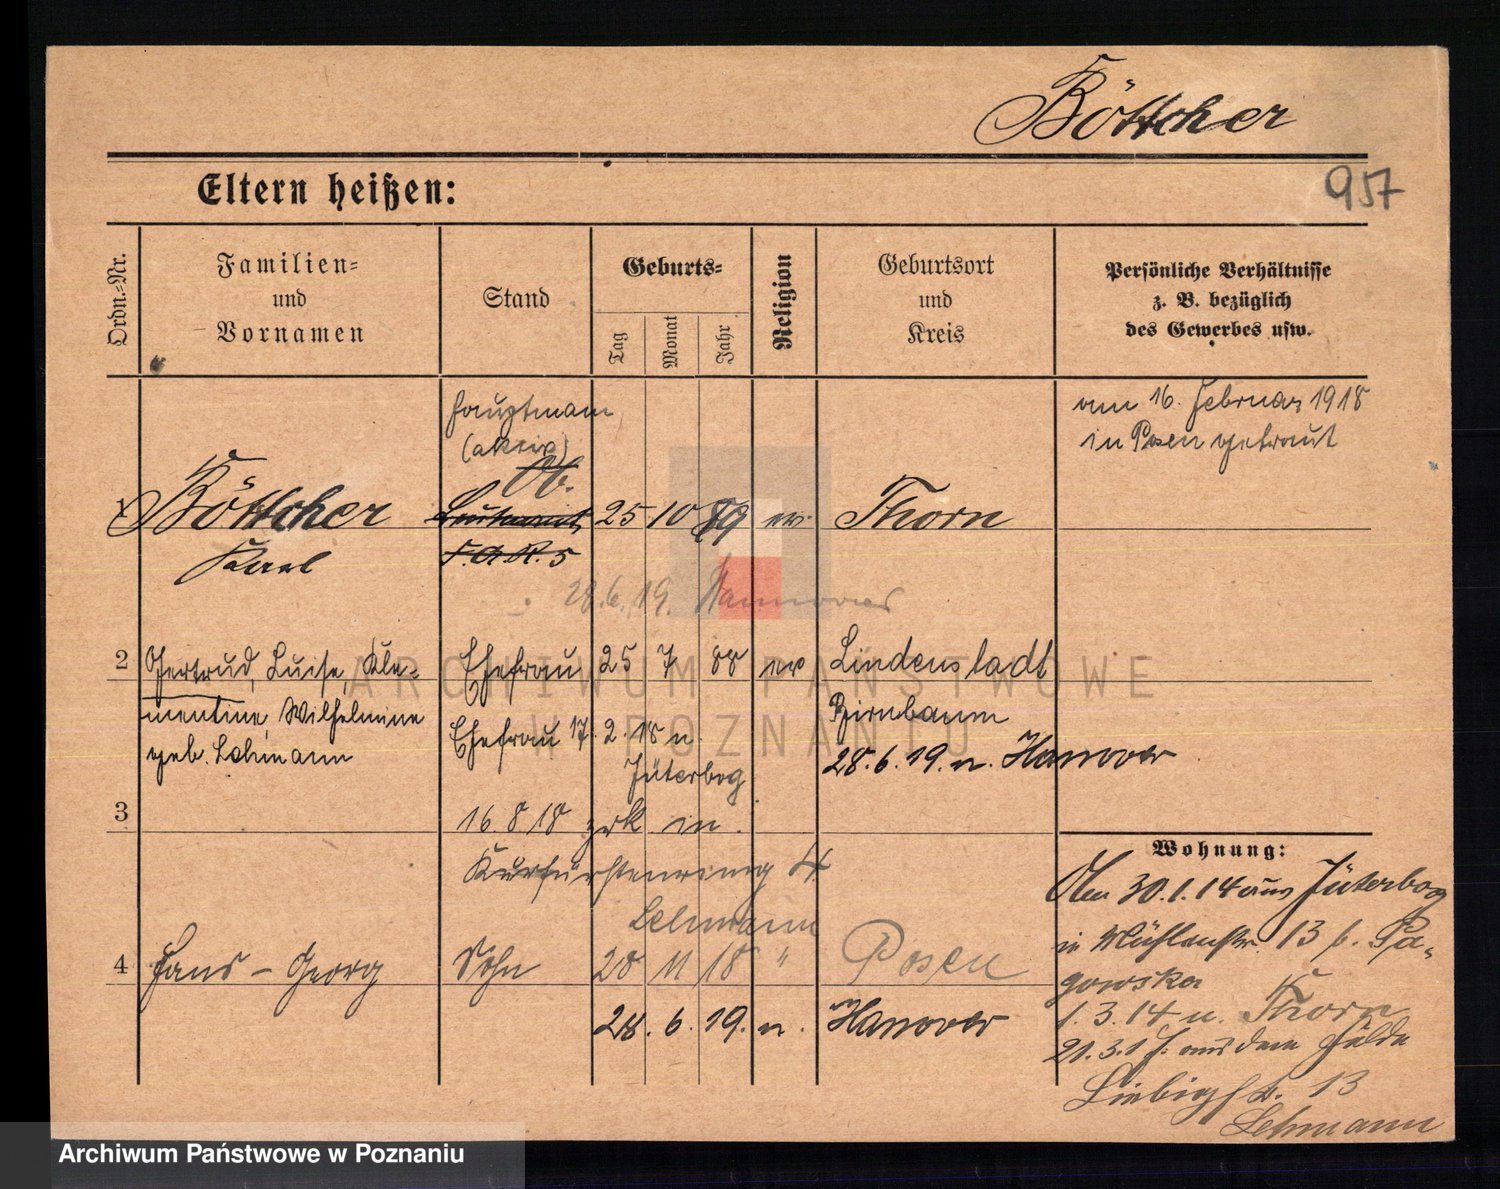 Böttcher
957
Eltern heißen:
Ordn.-Nr.
Familien-
und
Vornamen
Stand
Geburts-
Tag
Monat
Jahr
Religion
Geburtsort
und
Kreis
Persönliche Verhältnisse
z. B. bezüglich
des Gewerbes usw.
Hauptmann
(aktiv)
Ob.
am 16. Februar 1918
in Posen getraut
1 Böttcher Leutnant 25 10 89 ev. Thorn
Karl F.A.R. 5
28.6.19. Hannover
2 Gertrud, Luise, Kle- Ehefrau 25 7 88 ev Lindenstadt
mentine, Wilhelmine Ehefrau 17. 2. 18 n. Birnbaum
geb. Lehmann Jüterbog 28.6.19. n. Hanover
3 16. 8 18 zrk in.
Kurfürstenring 4
Lehmann
4 Hans - Georg Sohn 20 11 18 " Posen
28. 6. 19. n. Hanover
Wohnung:
Am 30.1.14 aus Jüterbog
in Mühlenstr. 13 b. Pa-
gowska
1.3.14 n. Thorn
21.3.17. aus dem Felde
Liebigstr. 13
Lehmann
ARCHIWUM PAŃSTWOWE
W POZNANIU
Archiwum Państwowe w Poznaniu